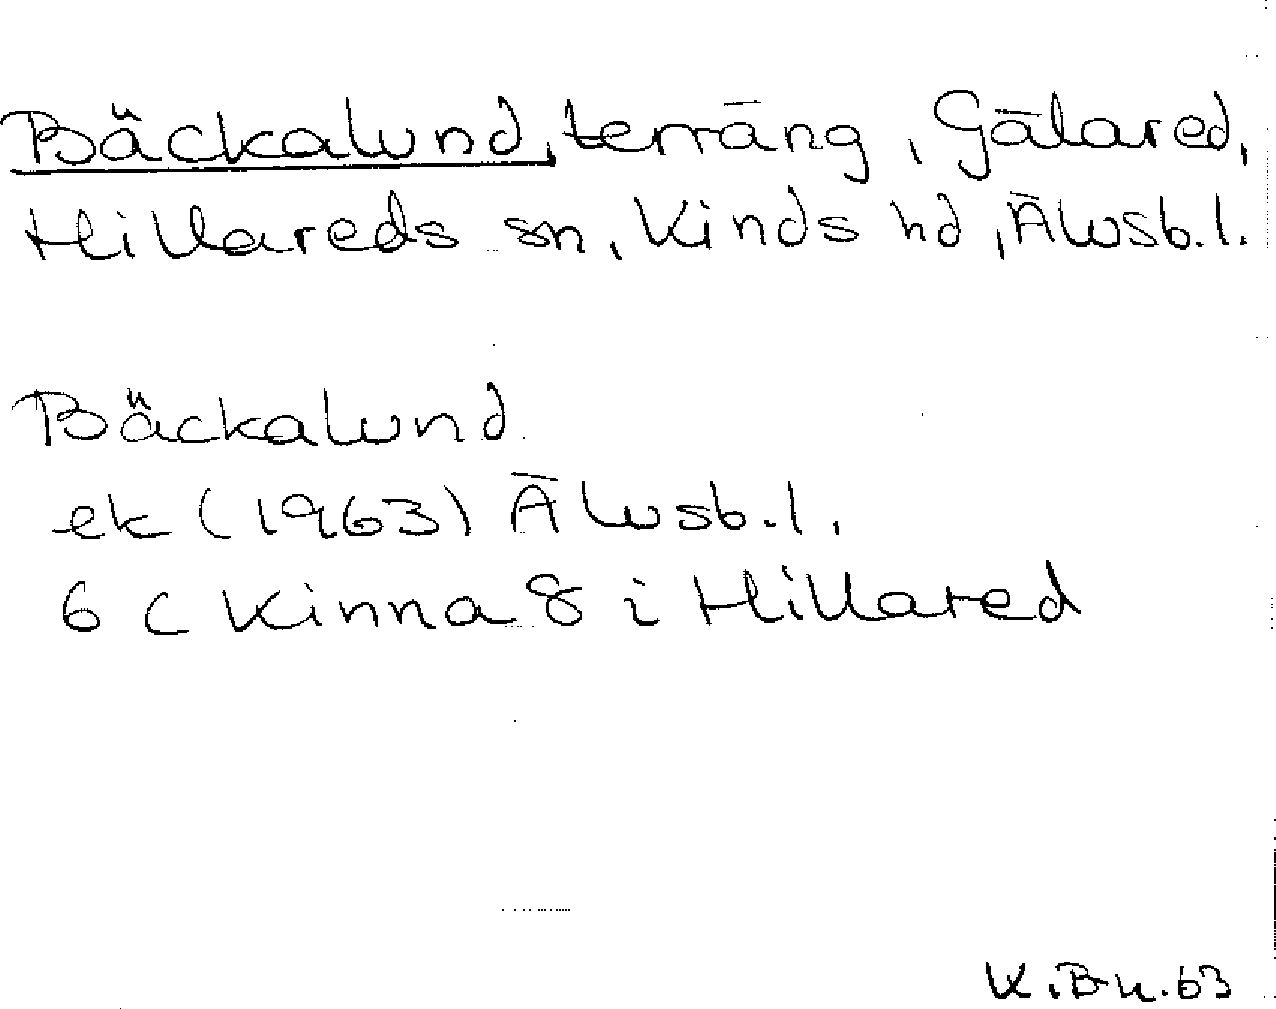 Bäckalund, terräng, Gälared,
Hillareds sn, Kinds hd, Älvsb.l.
Bäckalund
ek (1963) Älvsb.l.
6 C Kinna 8 i Hillared
K.Bn.63